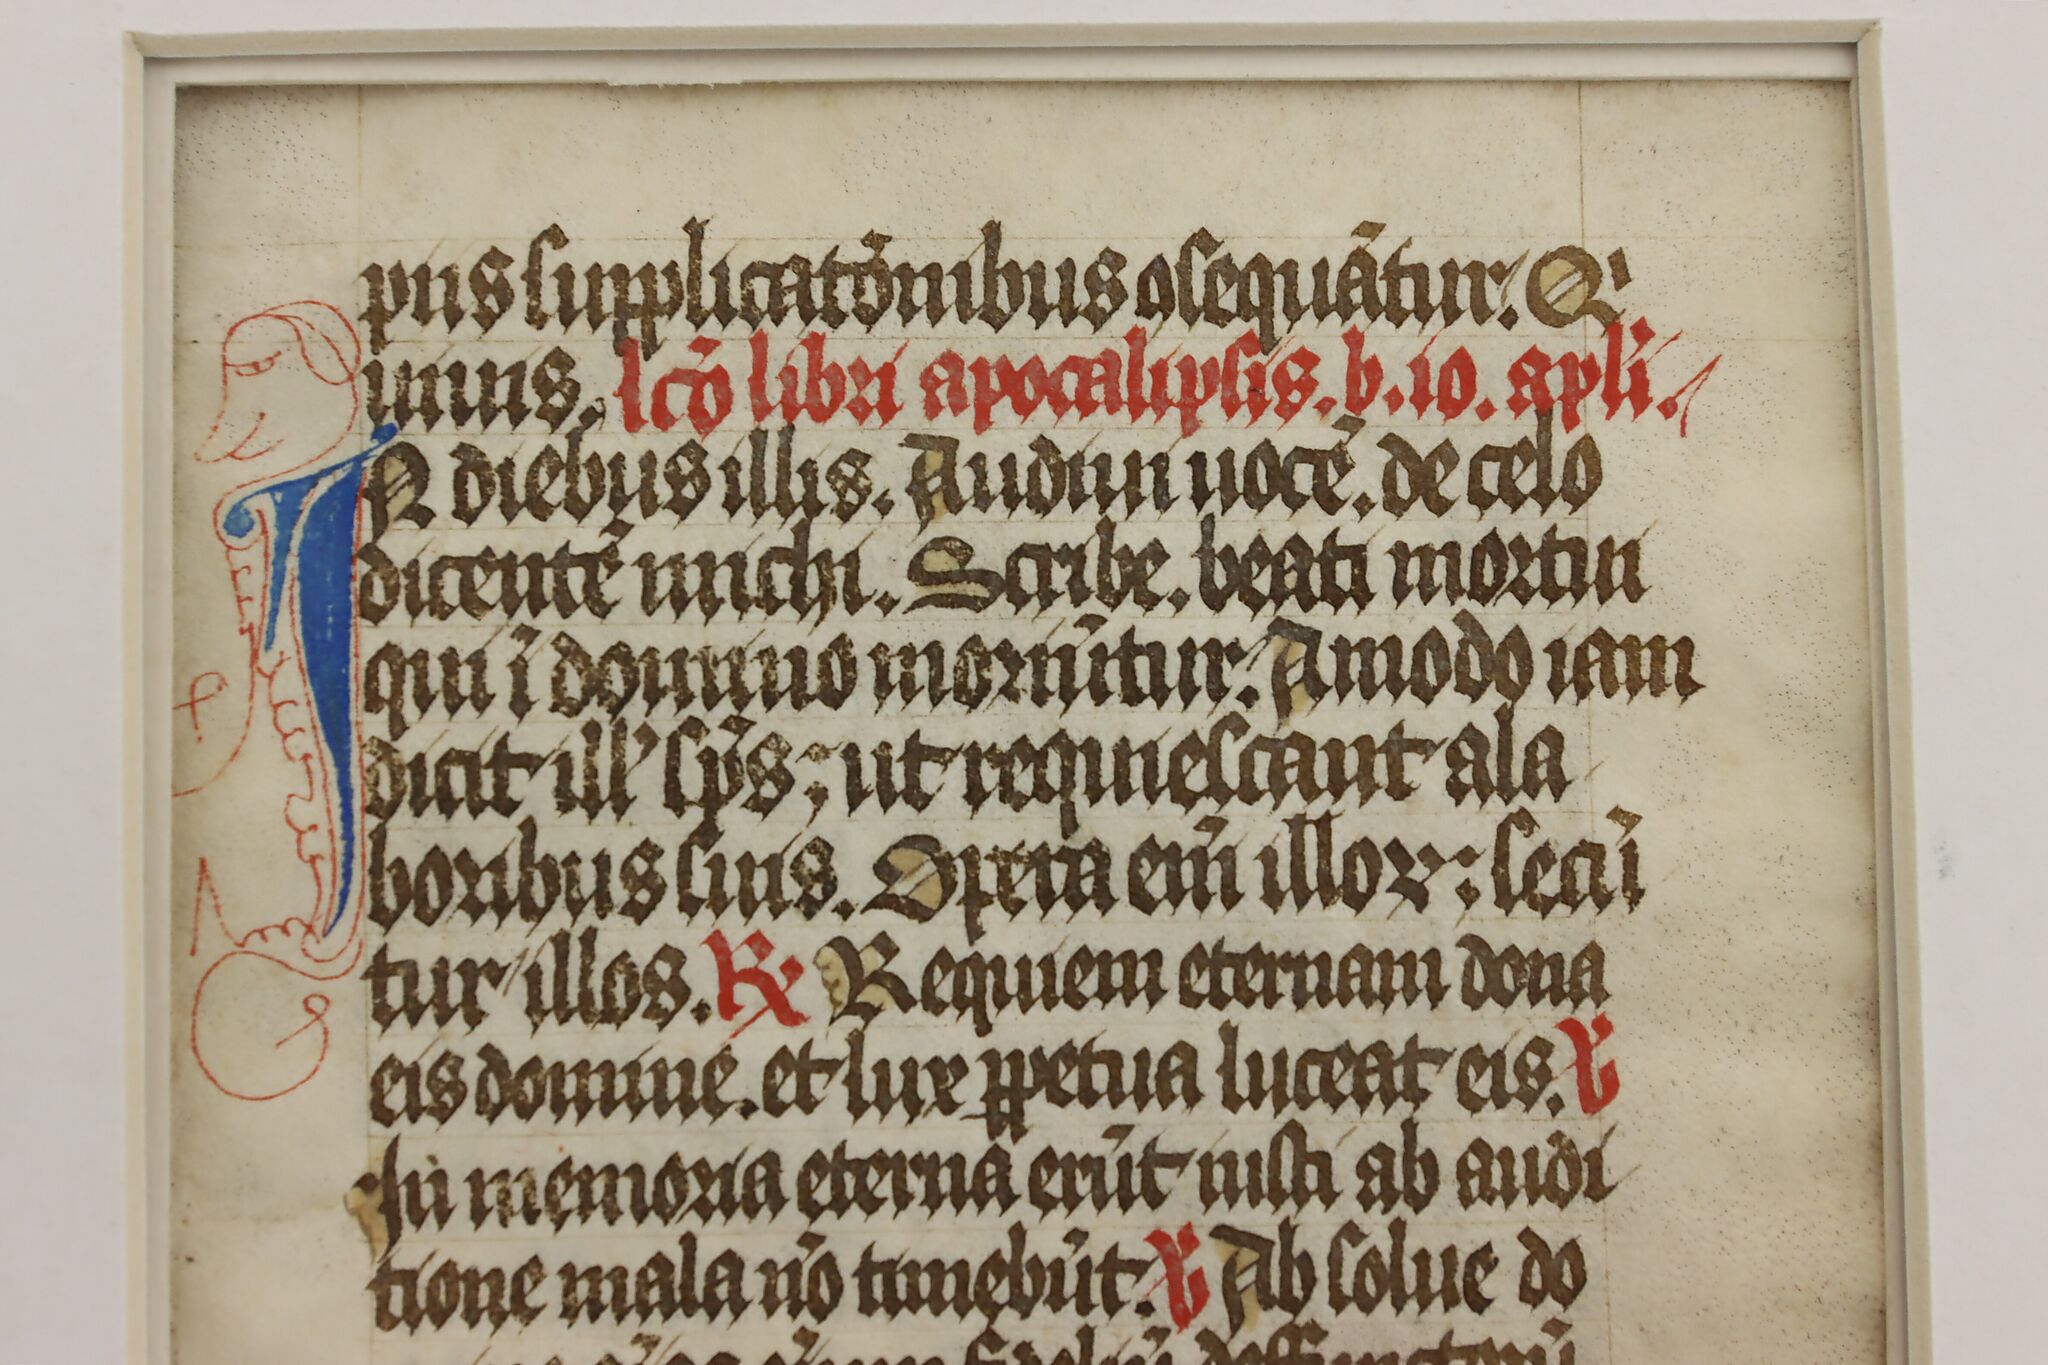 piis supplicatōnibus ꝯsequātur. Q'
uiuis. lcō libri apocalipsis. b. io. apłi.
IN diebus illis. Audiui uocē. de celo
dicentē michi. Scribe. beati mortui
qui ī domino moriūtur. Amodo iam
dicit ill' sp̄s; ut requiescant a la
boribus suis. Opera em̄ illoꝝ; secū
tur illos. ℟ Requiem eternam dona
eis domine. et lux ꝑpetua luceat eis. ℣
In memoria eterna erūt iusti ab audi
tione mala nō timebūt. ℣ Absolue do
fideliū deffunctorū